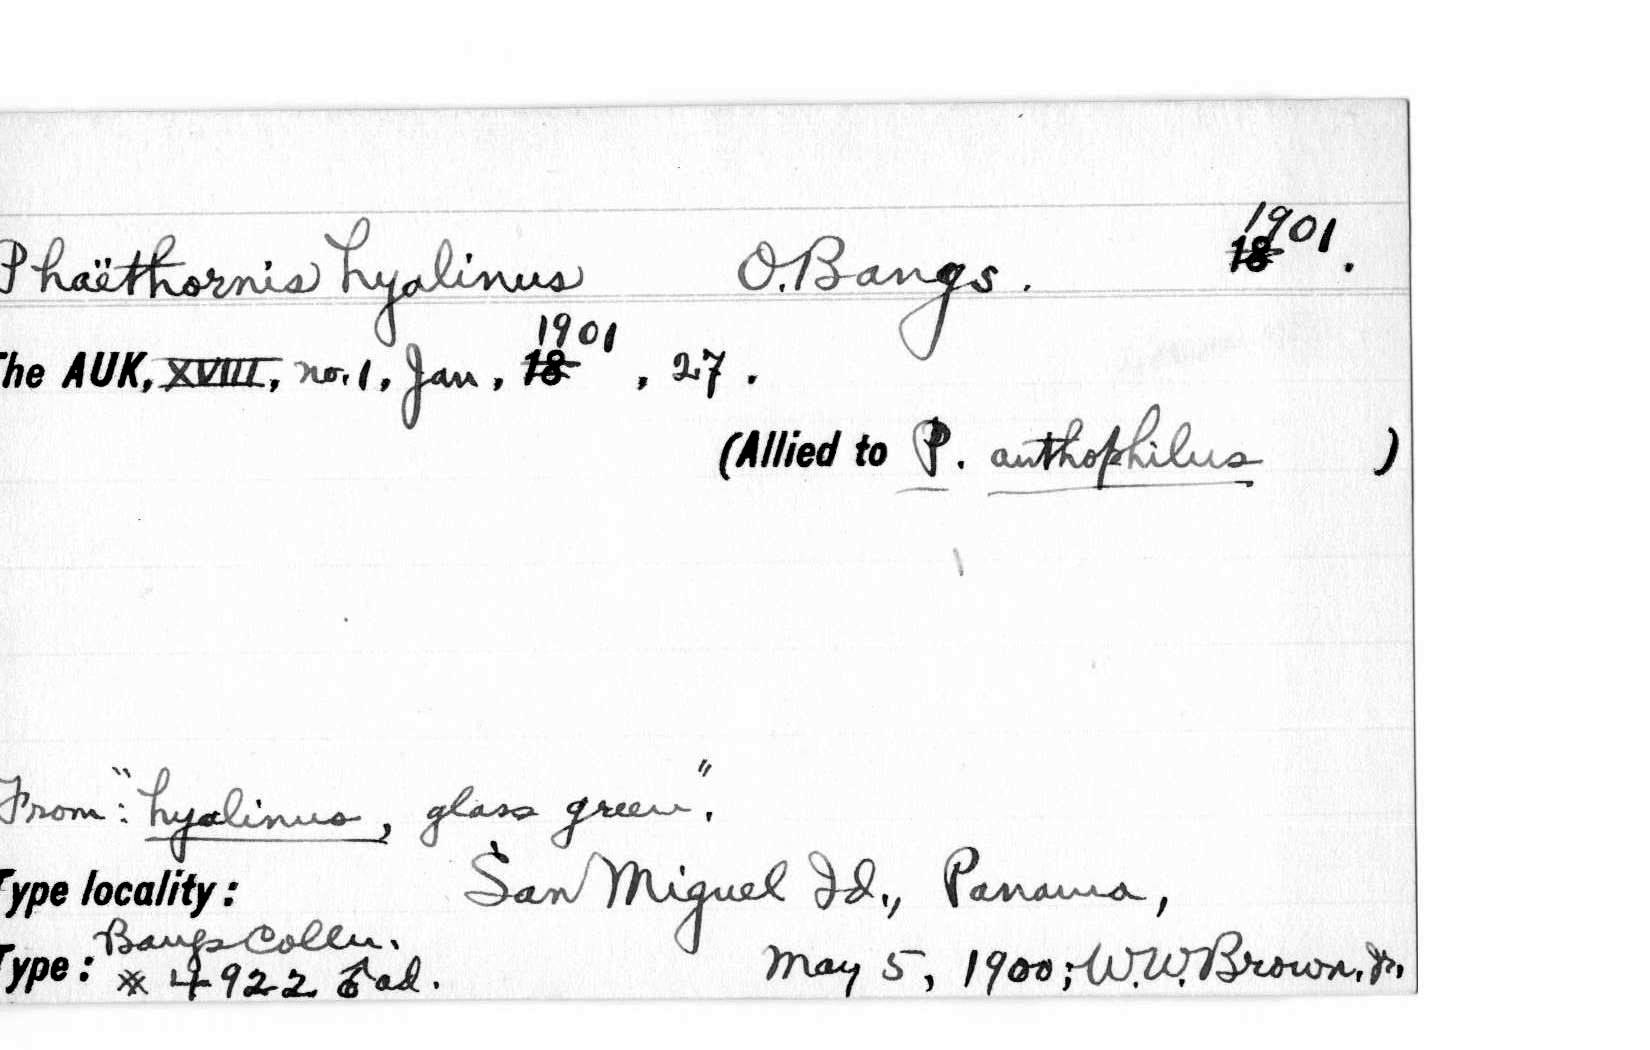 Phaëthornis hyalinus O. Bangs. 18 1901.
The AUK, XVIII, no. 1, Jan, 18 1901, 27.
(Allied to P. anthophilus)
From: "hyalinus, glass green".
Type locality: San Miguel Id., Panama,
Bangs Colln.
Type: # 4922 ♂ ad. May 5, 1900; W.W. Brown, Jr.